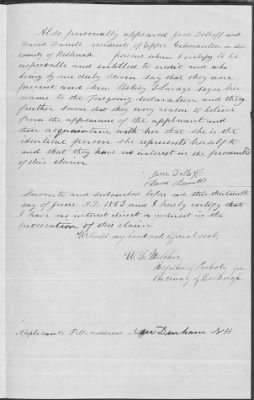 Also personally appeared Jese Dolloff and
David Dundt residents of Upper Gilmanton in the
county of Belknap person whom I certify to be
respectable and entitled to credit and who
being by me duly sworn say that they were
present and saw Betsey Savage sign
her name to the foregoing declaration and they
further swear that they have reason to believe
from the appearance of the applicant and
their acquaintance with her that she is the
identical person she represents herself to
and that they have no interest in the prosecution
of this claim
Jese Dolloff
David
Sworn to and subscribed before me this
day of June A.D. 1863 and I hereby certify that
I have no interest direct or indirect in the
prosecution of this claim.
Witness my hand and official seal,
Register of Probate for
the county of Belknap
Applicants P.O. address New Durham N H